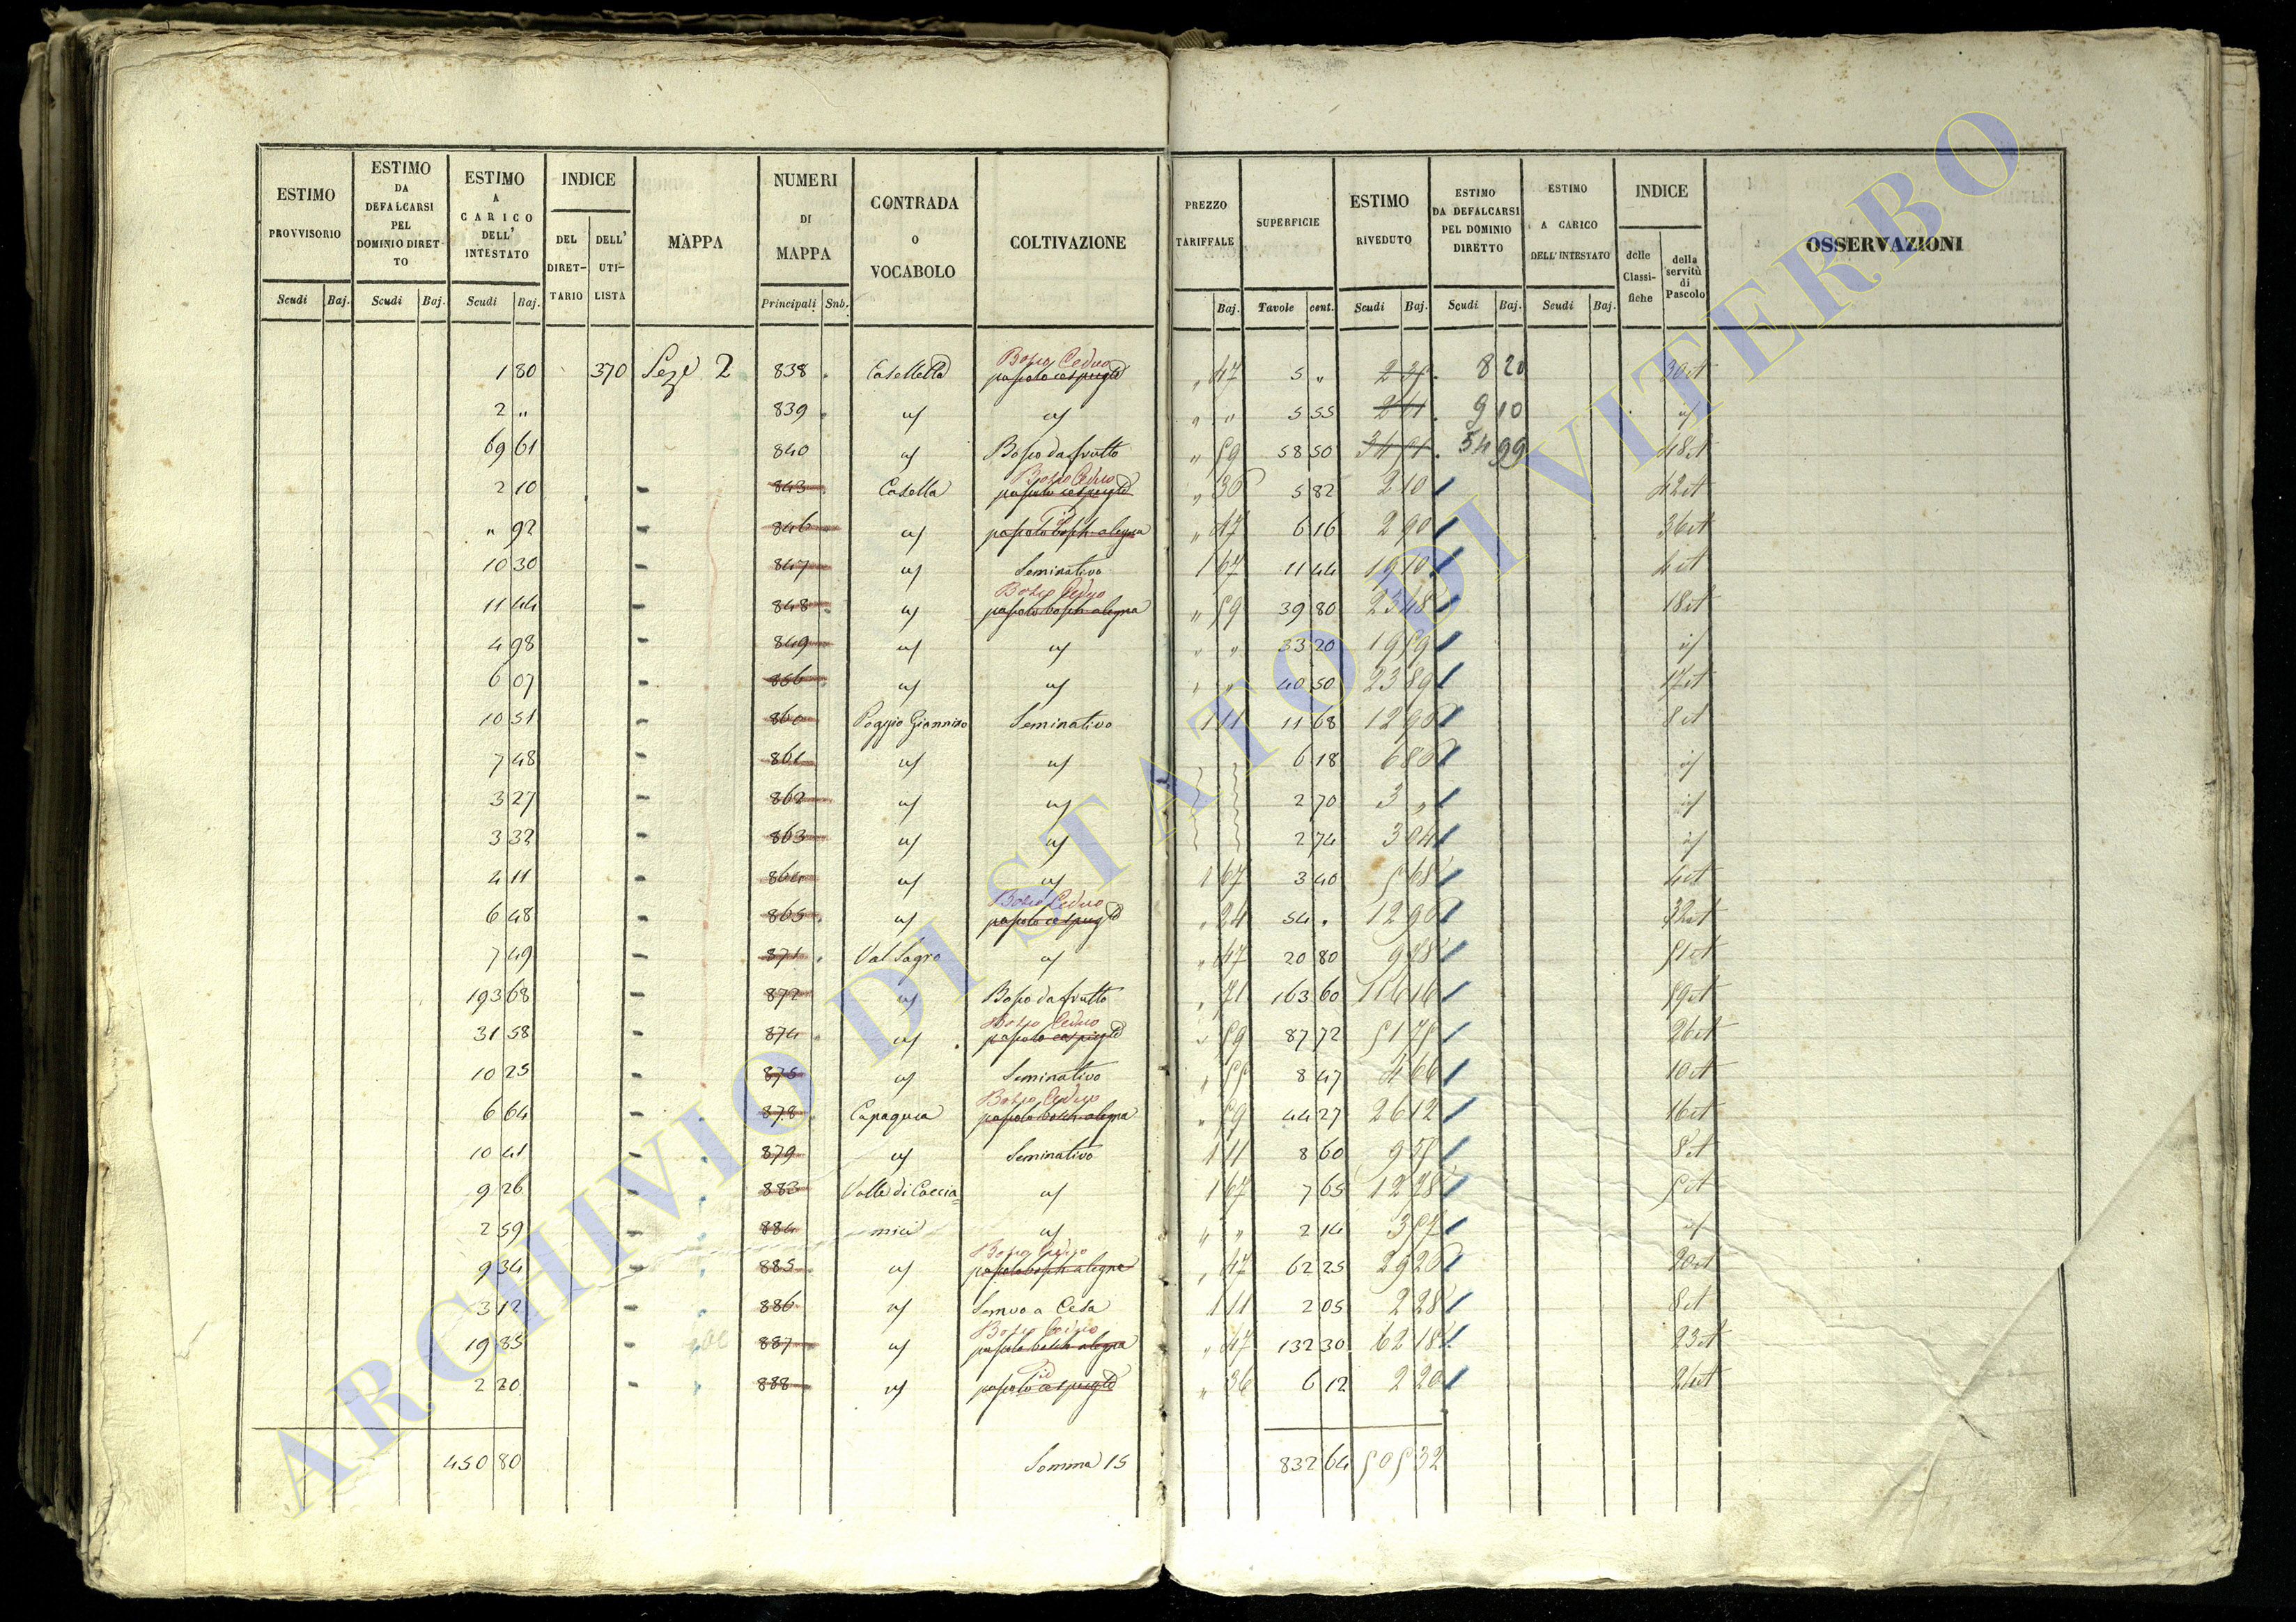 ESTIMO PROVVISORIO | ESTIMO DA DEFALCARSI PEL DOMINIO DIRETTO | ESTIMO A CARICO DELL' INTESTATO | INDICE | MAPPA | NUMERI DI MAPPA | CONTRADA O VOCABOLO | COLTIVAZIONE | PREZZO TARIFFALE | SUPERFICIE | ESTIMO RIVEDUTO | ESTIMO DA DEFALCARSI PEL DOMINIO DIRETTO | ESTIMO A CARICO DELL' INTESTATO | INDICE | OSSERVAZIONI
DEL DIRETTARIO | DELL' UTILISTA | delle Classifiche | della servitù di Pascolo
Scudi | Baj. | Scudi | Baj. | Scudi | Baj. | Principali | Snb. | Baj. | Tavole | cent. | Scudi | Baj. | Scudi | Baj. | Scudi | Baj.
Bosco Ceduo
1 80 | 370 | Sez.e 2 | 838 | Caselletta | pascolo cespugl.to | " 47 | 5 " | 2 35 | 8 20 | 30 et
2 " | 839 | " " | 5 55 | 2 61 | 9 10
69 61 | 840 | Bosco da frutto | " 59 | 58 50 | 34 51 | 54 99 | 48 et
Bosco Ceduo
2 10 | 843 | Casella | pascolo cespugl.to | " 36 | 5 82 | 2 10 | 42 et
" 92 | 846 | pascolo bosch. alegna | " 47 | 6 16 | 2 90 | 36 et
10 30 | 847 | Seminativo | 1 67 | 11 44 | 19 10 | 4 et
Bosco Ceduo
11 44 | 848 | pascolo bosch. alegna | " 59 | 39 80 | 23 48 | 18 et
4 98 | 849 | " " | 33 20 | 19 59
6 07 | 856 | " " | 40 50 | 23 89 | 17 et
10 51 | 860 | Poggio Giannino | Seminativo | 1 11 | 11 68 | 12 96 | 8 et
7 48 | 861 | 6 18 | 6 86
3 27 | 862 | 2 70 | 3 "
3 32 | 863 | 2 74 | 3 04
4 11 | 864 | 1 67 | 3 40 | 5 68 | 4 et
Bosco Ceduo
6 48 | 865 | pascolo cespugl.to | " 24 | 54 . | 12 96 | 32 et
7 49 | 871 | Val Sagro | " 47 | 20 80 | 9 78 | 51 et
193 68 | 872 | Bosco da frutto | " 71 | 163 60 | 116 16 | 19 et
Bosco Ceduo
31 58 | 874 | pascolo cespugl.to | " 59 | 87 72 | 51 75 | 26 et
10 25 | 875 | Seminativo | " 55 | 8 47 | 4 66 | 10 et
Bosco Ceduo
6 64 | 878 | Capaguea | pascolo bosch. alegna | " 59 | 44 27 | 26 12 | 16 et
10 41 | 879 | Seminativo | 1 11 | 8 60 | 9 55 | 8 et
9 26 | 883 | Valle di Caccia= | 1 67 | 7 65 | 12 78 | 5 et
2 59 | 884 | mici | " " | 2 14 | 3 57
Bosco Ceduo
9 34 | 885 | pascolo bosch. alegna | " 47 | 62 25 | 29 26 | 20 et
3 12 | 886 | Semvo a Cesa | 1 11 | 2 05 | 2 28 | 8 et
Bosco Ceduo
19 85 | 887 | pascolo bosch. alegna | " 47 | 132 30 | 62 18 | 23 et
2 20 | 888 | pascolo cespugl.to | " 36 | 6 12 | 2 20 | 24 et
450 80 | Somma 15 | 832 64 | 505 32
ARCHIVIO DI STATO DI VITERBO